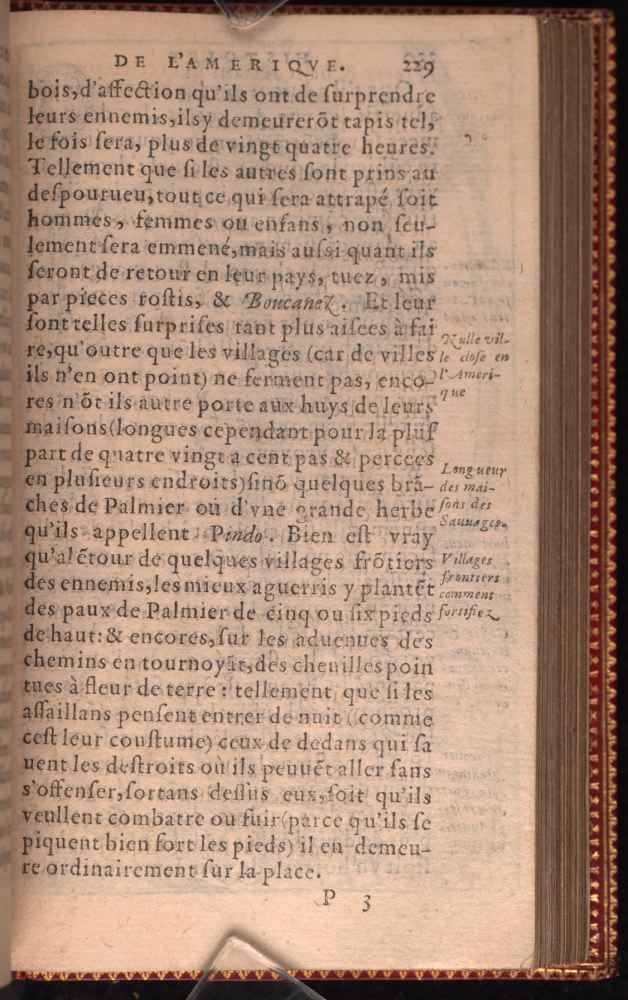 DE L'AMERIQVE. 229
bois, d'affection qu'ils ont de ſurprendre
leurs ennemis, ilsy demeurerõt tapis tel,
le fois ſera, plus de vingt quatre heures.
Tellement que ſi les autres ſont prins au
deſpourueu, tout ce qui ſera attrapé ſoit
hommes, femmes ou enfans, non ſeu-
lement ſera emmené, mais auſsi quant ils
ſeront de retour en leur pays, tuez, mis
par pieces roſtis, & Boucanez. Et leur
ſont telles ſurpriſes tant plus aiſees à fai
re, qu'outre que les villages (car de villes
ils n'en ont point) ne ferment pas, enco-
res n'õt ils autre porte aux huys de leurs
maiſons (longues cependant pour la pluſ
part de quatre vingt a cent pas & percees
en pluſieurs endroits) ſinõ quelques brã-
ches de Palmier ou d'vne grande herbe
qu'ils appellent Pindo. Bien eſt vray
qu'alẽtour de quelques villages frõtiers
des ennemis, les mieux aguerris y plantẽt
des paux de Palmier de cinq ou ſix pieds
de haut: & encores, ſur les aduenues des
chemins en tournoyãt, des cheuilles poin
tues à fleur de terre: tellement que ſi les
aſſaillans penſent entrer de nuit (comme
ceſt leur couſtume) ceux de dedans qui ſa
uent les deſtroits où ils peuuẽt aller ſans
s'offenſer, ſortans deſſus eux, ſoit qu'ils
veullent combatre ou fuir (parce qu'ils ſe
piquent bien fort les pieds) il en demeu-
re ordinairement ſur la place.
P 3
Nulle vil-
le cloſe en
l'Ameri-
que
Longueur
des mai-
ſons des
Sauuages.
Villages
frontiers
comment
fortifiez